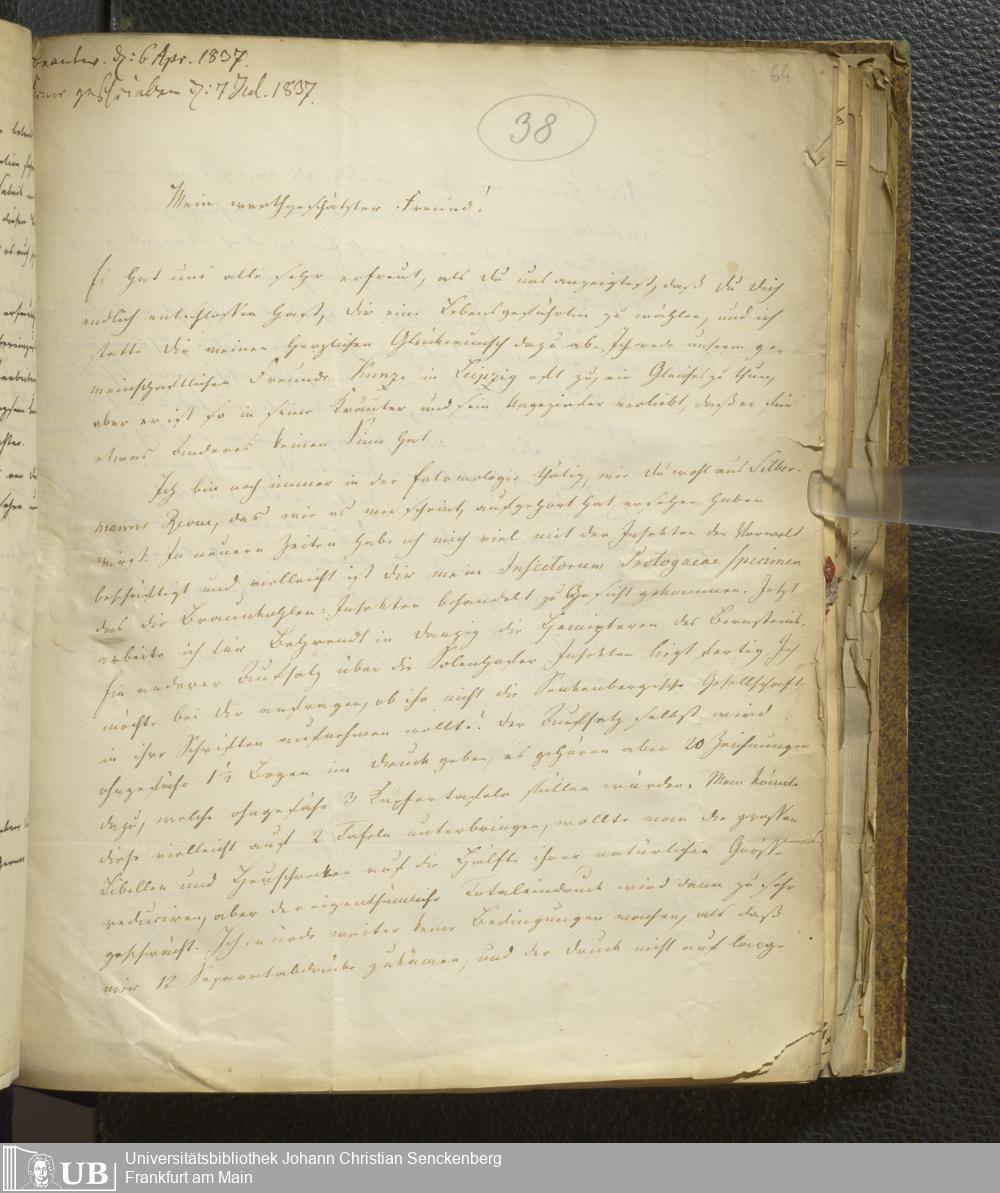 beantw. d: 6 Apr. 1837.
geschrieben d: 7 Jul. 1837.
64
38
Mein werthgeschätzter Freund!
Es hat uns alle sehr erfreut, als Du uns anzeigtest, daß Du Dich
endlich entschlossen hast, Dir eine Lebensgefährtin zu wählen, und ich
statte Dir meinen herzlichen Glückwunsch dazu ab. Ich rede unserm ge-
meinschaftlichen Freunde Kunze in Leipzig oft zu, ein Gleiches zu thun,
aber er ist so in seine Kräuter und sein Ungeziefer verliebt, daß er für
etwas Anderes keinen Sinn hat.
Ich bin noch immer in der Entomologie thätig, wie Du wohl aus Silber-
manns Revue, das wie es mir scheint, aufgehört hat, ersehen haben
wirst. In neuern Zeiten habe ich mich viel mit den Insekten der Vorwelt
beschäftigt und vielleicht ist Dir mein Insectorum Protogaeae specimen
das die Braunkohlen-Insekten behandelt zu Gesicht gekommen. Jetzt
arbeite ich für Behrendt in Danzig die Hemipteren des Bernsteins.
Ein anderer Aufsatz über die Solenhofer Insekten liegt fertig. Ich
möchte bei Dir anfragen, ob ihn nicht die Senkenbergische Gesellschaft,
in ihre Schriften aufnehmen wollte? Der Aufsatz selbst wird
ohngefähr 1½ Bogen im Druck geben, es gehören aber 20 Zeichnungen
dazu, welche ohngefähr 3 Kupfertafeln füllen würden. Man könnte
diese vielleicht auf 2 Tafeln unterbringen, wollte man die grossen
Libellen und Heuschrecken auf die Hälfte ihrer natürlichen Grösse
reduciren, aber der eigenthümliche Totaleindruck wird dann zu sehr
geschwächt. Ich würde weiter keine Bedingungen machen, als daß
mir 12 Separatabdrücke zukämen, und der Druck nicht auf lange
UB
Universitätsbibliothek Johann Christian Senckenberg
Frankfurt am Main